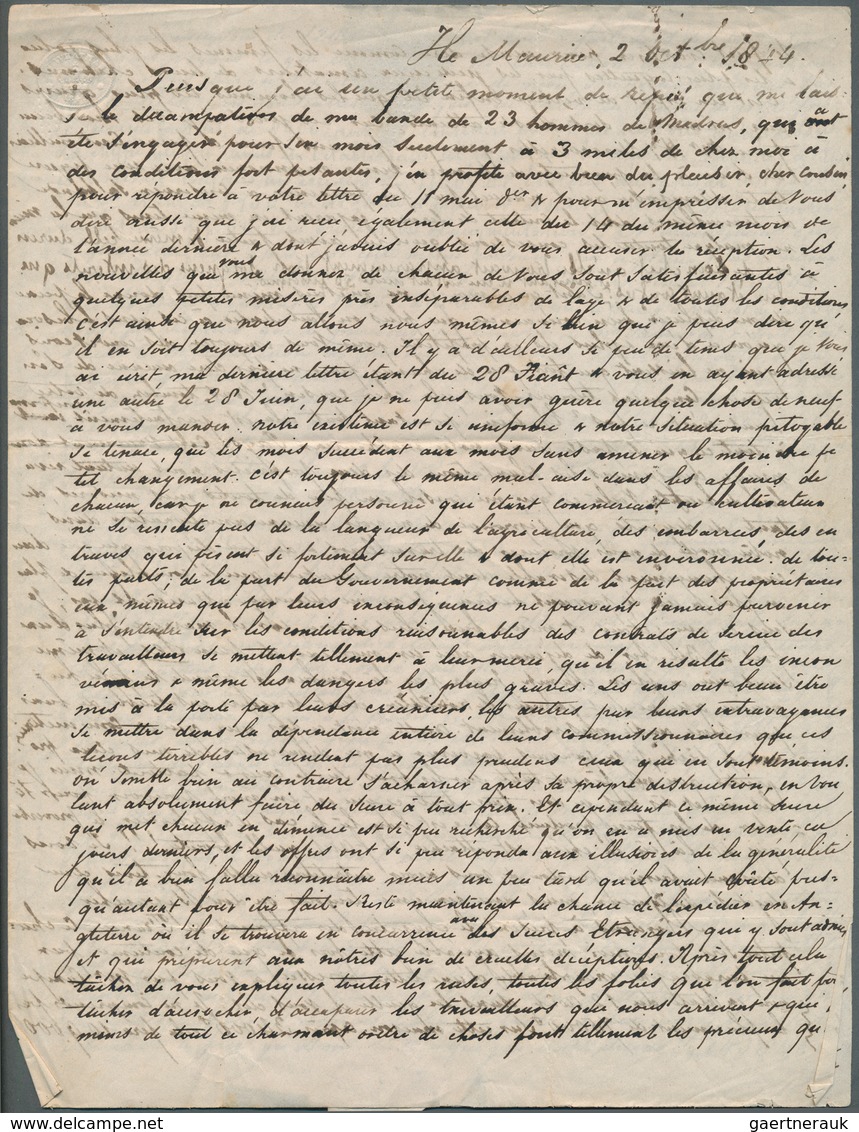 Ile Maurice, 2 Octbre 1844.
Puisque j'ai un petit moment de répit que me lais-
se la décampation de ma bande de 23 hommes de Madras, qui a
été s'engager pour un mois seulement à 3 miles de chez moi à
des conditions fort pesantes, j'en profite avec bien du plaisir, cher cousin,
pour répondre à votre lettre du 11 mai der & pour m'empresser de vous
dire aussi que j'ai reçu également celle du 14 du même mois de
l'année dernière & dont j'avais oublié de vous accuser la réception. Les
nouvelles que vous me donnez de chacun de vous sont satisfaisantes à
quelques petites misères près inséparables de l'age & de toutes les conditions
c'est ainsi que nous allons nous mêmes si bien que je puis dire qu'
il en soit toujours de même. Il y a d'ailleurs si peu de tems que je vous
ai écrit ma dernière lettre étant du 28 Août & vous en ayant adressé
une autre le 28 Juin, que je ne puis avoir guère quelque chose de neuf
à vous mander. notre existence est si uniforme & notre situation pitoyable
si tenace, que les mois succèdent aux mois sans amener le moindre pe
tit changement. c'est toujours le même mal-aise dans les affaires de
chacun, car je ne connais personne qui étant commerçant ou cultivateur
ne se ressente pas de la langueur de l'agriculture, des embarras des en
traves qui pèsent si fortement sur elle & dont elle est environnée de tou-
tes parts, de la part du Gouvernement comme de la part des propriétaires
eux mêmes qui par leurs inconséquences ne pouvant jamais parvenir
à s'entendre sur les conditions raisonnables des contrats de service des
travailleurs se mettent tellement à leur merci, qu'il en résulte les incon
véniens & même les dangers les plus graves. Les uns ont beau être
mis à la porte par leurs créanciers, les autres par leurs extravagances
se mettre dans la dépendance entière de leurs commissionnaires que ces
leçons terribles ne rendent pas plus prudens ceux qui en sont témoins.
on semble bien au contraire s'acharner après sa propre destruction, en vou
lant absolument faire du sucre à tout prix. Et cependant ce même sucre
qui met chacun en démence est si peu recherché qu'on en a mis en vente ces
jours derniers, et les offres ont si peu répondu aux illusions de la généralité
qu'il a bien fallu reconnaitre mais un peu tard qu'il avait coûté pres-
qu'autant pour être fait. Reste maintenant la chance de l'expédier en An-
gleterre où il se trouvera en concurrence avec les sucres Etrangers qui y sont admis
et qui préparent aux nôtres bien de cruelles déceptions. Après tout cela
tâcher de vous expliquer toutes les ruses, toutes les folies que l'on fait pour
tâcher d'accrocher, d'accaparer les travailleurs qui nous arrivent & qui
mieux de tout ce charmant ordre de choses font tellement les précieux qu